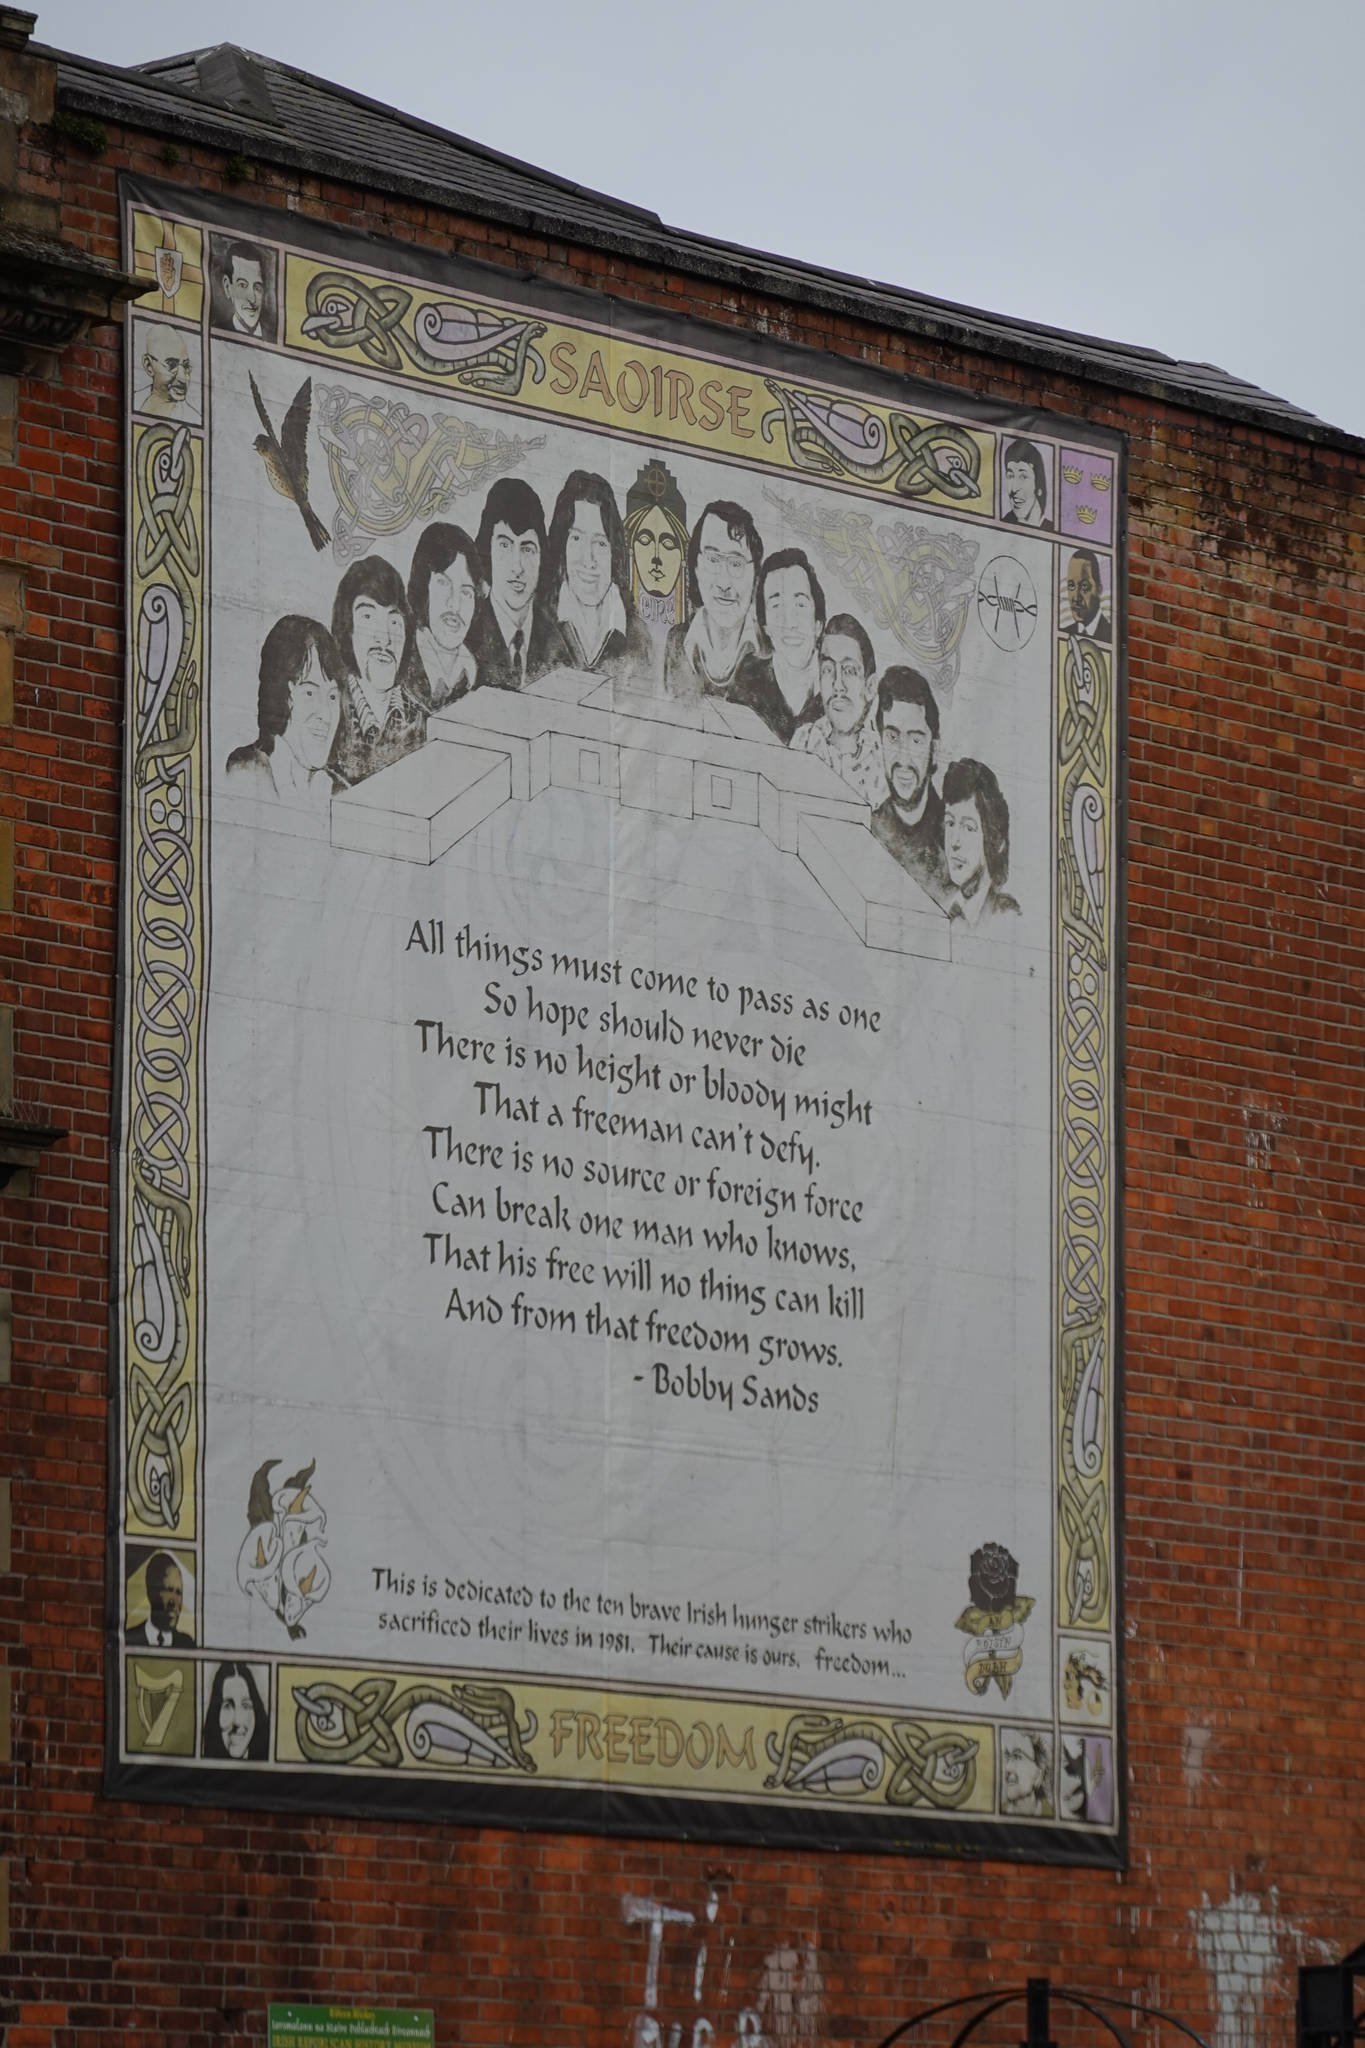 SAOIRSE
eire
All things must come to pass as one
So hope should never die
There is no height or bloody might
That a freeman can't defy.
There is no source or foreign force
Can break one man who knows,
That his free will no thing can kill
And from that freedom grows.
- Bobby Sands
This is dedicated to the ten brave Irish hunger strikers who
sacrificed their lives in 1981. Their cause is ours. freedom...
AN
ROISIN
DUBH
FREEDOM
Eileen Hickey
Iarsmalann na Staire Poblachtach Éireannach
IRISH REPUBLICAN HISTORY MUSEUM